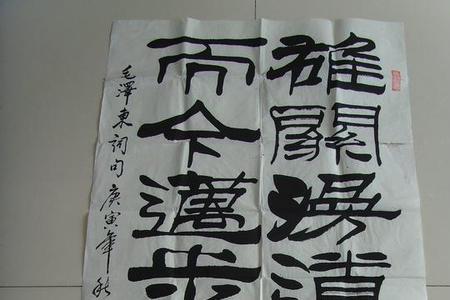 雄關漫道
而今邁步
毛澤東詞句庚寅年秋